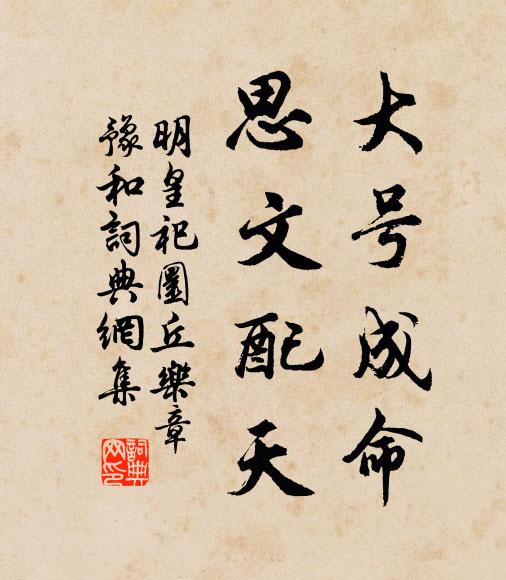 大号成命
思文配天
明皇祀圜丘樂章
豫和詞典網集
詞典
网印